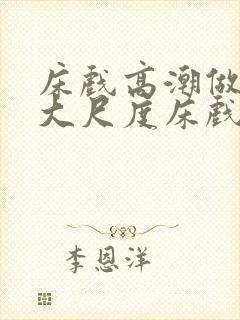 床戲高潮做
大尺度床戲
李恩洋